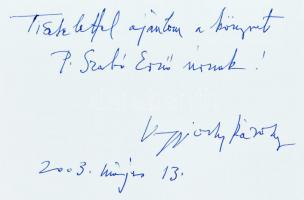 Tisztelettel ajánlom a könyvet
P. Szabó Ernő úrnak!
2003. május 13.